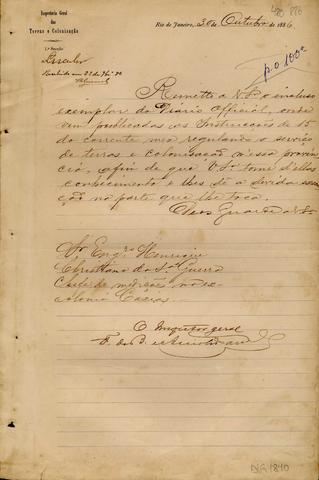 Inspectoria Geral
das
Terras e Colonisação
1ª Secção
Circular
Rio de Janeiro, 30 de Outubro de 1886
Remetto a V.S. o incluso
exemplar do Diario Official, onde
vem publicadas as Instrucções de 15
do corrente mez regulando o serviço
de terras e colonisação n'essa provin
cia, afim de que V.S. tome d'ellas
conhecimento e lhes dê a devida exe
cução na parte que lhe toca.
Deos Guarde a V.S.
Sr Engro Henrique
Christiano da Sª Guerra
Chefe de medições na ex-
colonia Caxias.
O Inspector geral
DIG 1840